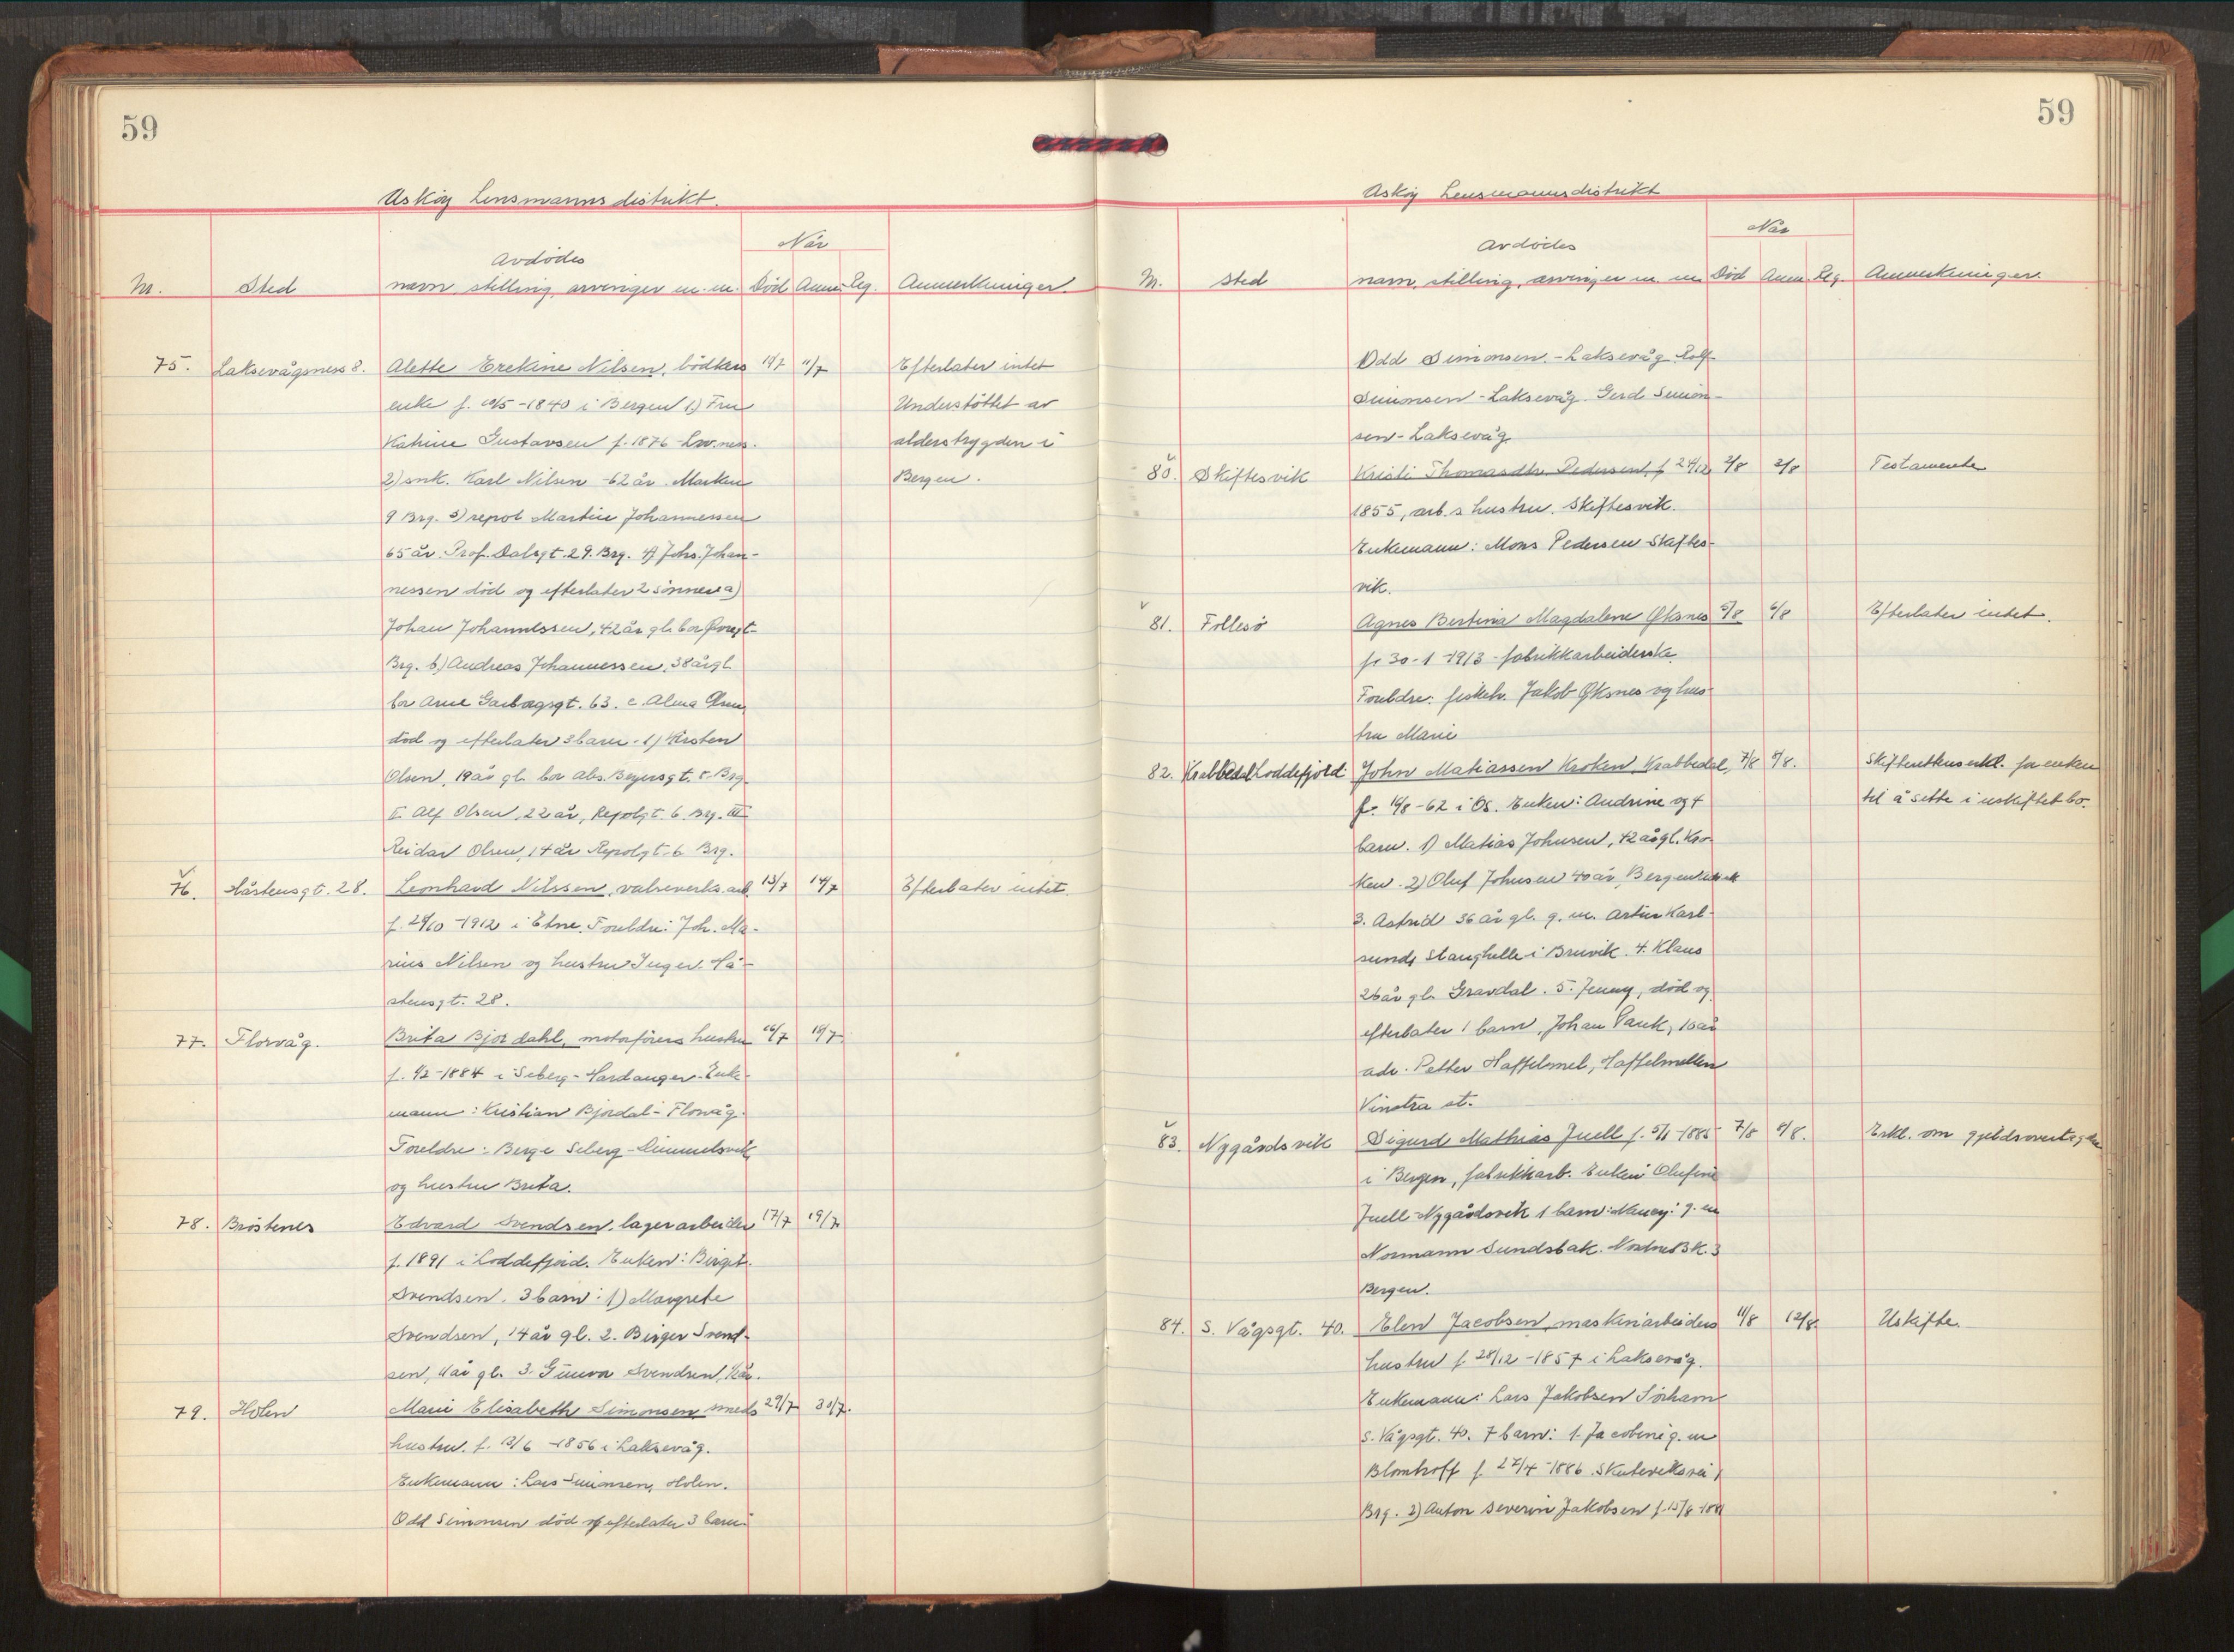 59
Askøy Lensmannsdistrikt.
Når
Avdödes
Nr. Sted navn, stilling, arvinger m.m. Död Anm. Reg. Anmerkninger.
75. Laksevågsness 8. Alette Erekine Nilsen, bödkers 10/7 11/7 Efterlater intet
enke f. 10/5-1840 i Bergen 1) Fru Understöttet av
Katrine Gustavsen f. 1876 Lav.ness. alderstrygden i
2) snk. Karl Nilsen - 62 år. Marken Bergen.
9 Brg. 3) repsl Martin Johannessen
65 år. Prof. Dalsgt. 29. Brg. 4) Johs. Johan-
nessen död og efterlater 2 sönner a)
Johan Johannessen, 42 år gl. bor
Brg. b) Andreas Johannessen, 38 årgl.
bor Arne Garborgsgt. 63. c. Alma Olsen,
död og efterlater 3 barn. 1) Kirsten
Olsen, 19 år gl. bor Abs. Beyersgt. 5. Brg.
II. Alf Olsen, 22 år, Repslgt. 6. Brg. III
Reidar Olsen, 14 år Repslgt. 6 Brg.
76. Håsteinsgt. 28. Leonhard Nilssen, valseverks.arb. 13/7 14/7 Efterlater intet.
f. 29/10-1912 i Etne. Foreldre: Joh. Ma-
rius Nilsen og hustru Inger. Hå-
steinsgt. 28.
77. Florvåg. Brita Bjordahl, motorförers hustru 16/7 18/7
f. 4/2-1884 i Seberg-Hardanger. Enke-
mann: Kristian Bjordal - Florvåg.
Foreldre: Berge Seberg
og hustru Brita.
78. Bröstenes Edvard Svendsen, lagerarbeider 17/7 19/7
f. 1891 i Loddefjord. Enken: Birgit.
Svendsen. 3 barn: 1) Margrete
Svendsen, 14 år gl. 2. Birger Svend-
sen, 11 år gl. 3. Gunvor Svendsen,
79. Holen Marie Elisabeth Simonsen, smeds 29/7 30/7.
hustru. f. 13/6-1856 i Laksevåg.
Enkemann: Lars Simonsen, Holen.
Odd Simonsen död og efterlater 3 barn:
59
Askøy Lensmannsdistrikt
Når
Avdödes
Nr. Sted navn, stilling, arvinger m.m. Död Anm. Reg. Anmerkninger.
Odd Simonsen. - Laksevåg Rolf
Simonsen - Laksevåg. Gerd Simon-
sen - Laksevåg.
80. Skiftesvik Kristi Thomasdtr. Pedersen, f. 24/12 2/8 2/8 Testamente
1855, arb.s hustru. Skiftesvik.
Enkemann: Mons Pedersen Skiftes-
vik.
81. Follesö Agnes Bertina Magdalene Øksnes 5/8 6/8 Efterlater intet.
f. 30-1-1913 - fabrikkarbeiderske
Foreldre: fiskeh. Jakob Øksnes og hus-
tru Marie
82. Krabbedal Loddefjord John Matiassen Kroken, Krabbedal, 7/8 9/8. Skifteattens erkl. for enken
f. 16/8-62 i Os. Enken: Andrine og 4 til å sitte i uskiftet bo.
barn. 1) Matias Johnsen, 42 årgl. Kro-
ken. 2) Oluf Johnsen 40 år,
3. Astrid 36 år gl. g. m. Artur Karl-
sund, Stanghelle i Bruvik. 4. Klaus
26 år gl. Gravdal. 5. Jenny, död og
efterlater 1 barn, Johan Vank, 10 år
adr. Petter Haffelmel, Haffelmellen
Vinstra st.
83. Nygårdsvik Sigurd Mathias Juell f. 5/1-1885 7/8 8/8. Erkl. om gjeldsovertagelse
i Bergen, fabrikkarb. Enken: Olufine
Juell Nygårdsvik 1 barn: Nancy: g. m
Normann Sundsbak. 3
Bergen.
84. S. Vågsgt. 40. Elen Jacobsen, maskinarbeiders 11/8 12/8 Uskifte.
hustru f. 28/12-1857 i Laksevåg.
Enkemann: Lars Jakobsen Sörhavn
S. Vågsgt. 40. 7 barn: 1. Jacobine g. m
Blomhoff f. 27/4-1886. Skuteviksvei 1
Brg. 2) Anton Severin Jakobsen f. 15/6